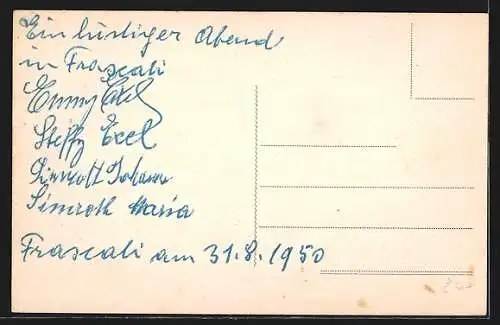 Ein lustiger Abend
in Frascati
Emmy Exel
Steffy Exel
Simroth Johann
Simroth Maria
Frascati am 31.8.1950